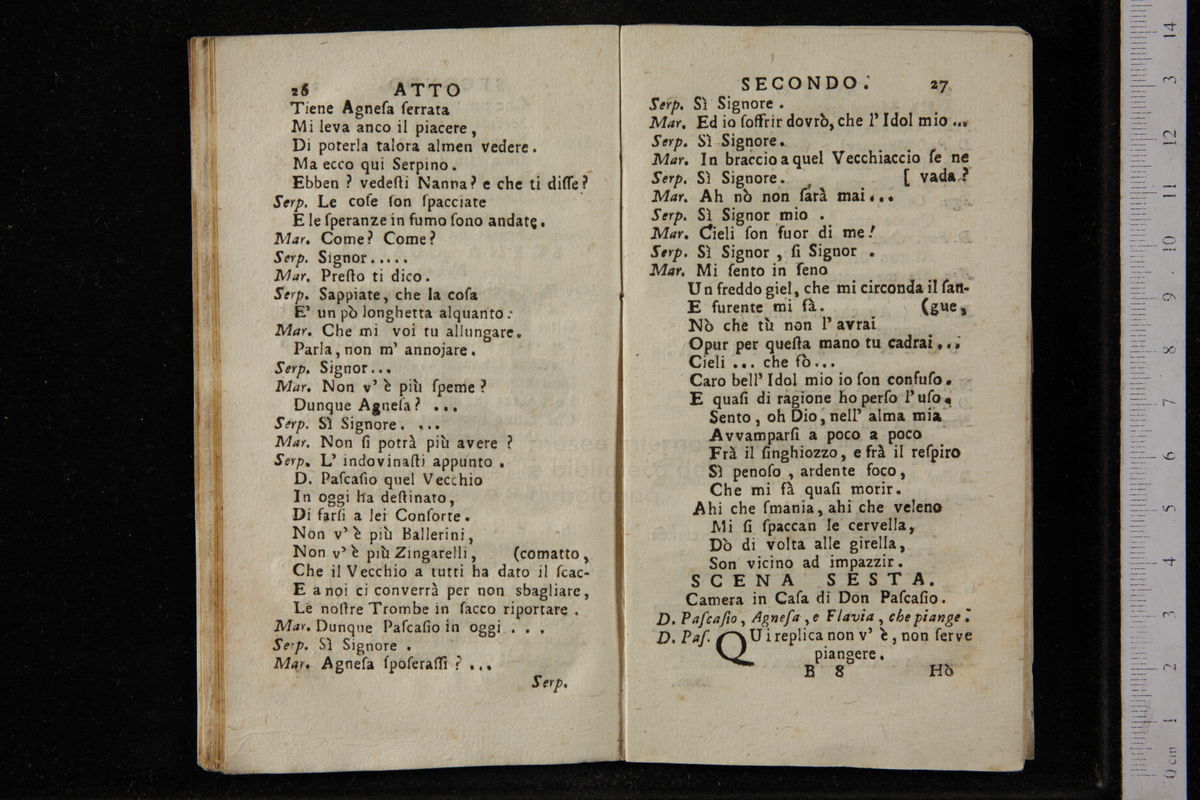 26 ATTO
Tiene Agneſa ſerrata
Mi leva anco il piacere,
Di poterla talora almen vedere.
Ma ecco qui Serpino.
Ebben? vedeſti Nanna? e che ti diſſe?
Serp. Le coſe ſon ſpacciate
E le ſperanze in fumo ſono andate.
Mar. Come? Come?
Serp. Signor.....
Mar. Preſto ti dico.
Serp. Sappiate, che la coſa
E' un pò longhetta alquanto.
Mar. Che mi voi tu allungare.
Parla, non m' annojare.
Serp. Signor...
Mar. Non v' è più ſpeme?
Dunque Agneſa? ...
Serp. Sì Signore. ...
Mar. Non ſi potrà più avere?
Serp. L' indovinaſti appunto.
D. Paſcaſio quel Vecchio
In oggi ha deſtinato,
Di farſi a lei Conſorte.
Non v' è più Ballerini,
Non v' è più Zingarelli, (comatto,
Che il Vecchio a tutti ha dato il ſcac-
E a noi ci converrà per non sbagliare,
Le noſtre Trombe in ſacco riportare.
Mar. Dunque Paſcaſio in oggi ...
Serp. Sì Signore.
Mar. Agneſa ſpoſeraſſi? ...
Serp.
SECONDO. 27
Serp. Sì Signore.
Mar. Ed io ſoffrir dovrò, che l' Idol mio ...
Serp. Sì Signore.
Mar. In braccio a quel Vecchiaccio ſe ne
Serp. Sì Signore. [ vada?
Mar. Ah nò non ſarà mai...
Serp. Sì Signor mio.
Mar. Cieli ſon fuor di me!
Serp. Sì Signor, ſi Signor.
Mar. Mi ſento in ſeno
Un freddo giel, che mi circonda il ſan-
E furente mi fà. (gue,
Nò che tù non l' avrai
Opur per queſta mano tu cadrai...
Cieli ... che fò...
Caro bell' Idol mio io ſon confuſo.
E quaſi di ragione ho perſo l' uſo.
Sento, oh Dio, nell' alma mia
Avvamparſi a poco a poco
Frà il ſinghiozzo, e frà il reſpiro
Sì penoſo, ardente foco,
Che mi fà quaſi morir.
Ahi che ſmania, ahi che veleno
Mi ſi ſpaccan le cervella,
Dò di volta alle girella,
Son vicino ad impazzir.
SCENA SESTA.
Camera in Caſa di Don Paſcaſio.
D. Paſcaſio, Agneſa, e Flavia, che piange.
D. Paſ. QUi replica non v' è, non ſerve
piangere.
B 8 Hò
14
13
12
11
10
9
8
7
6
5
4
3
2
1
0 cm